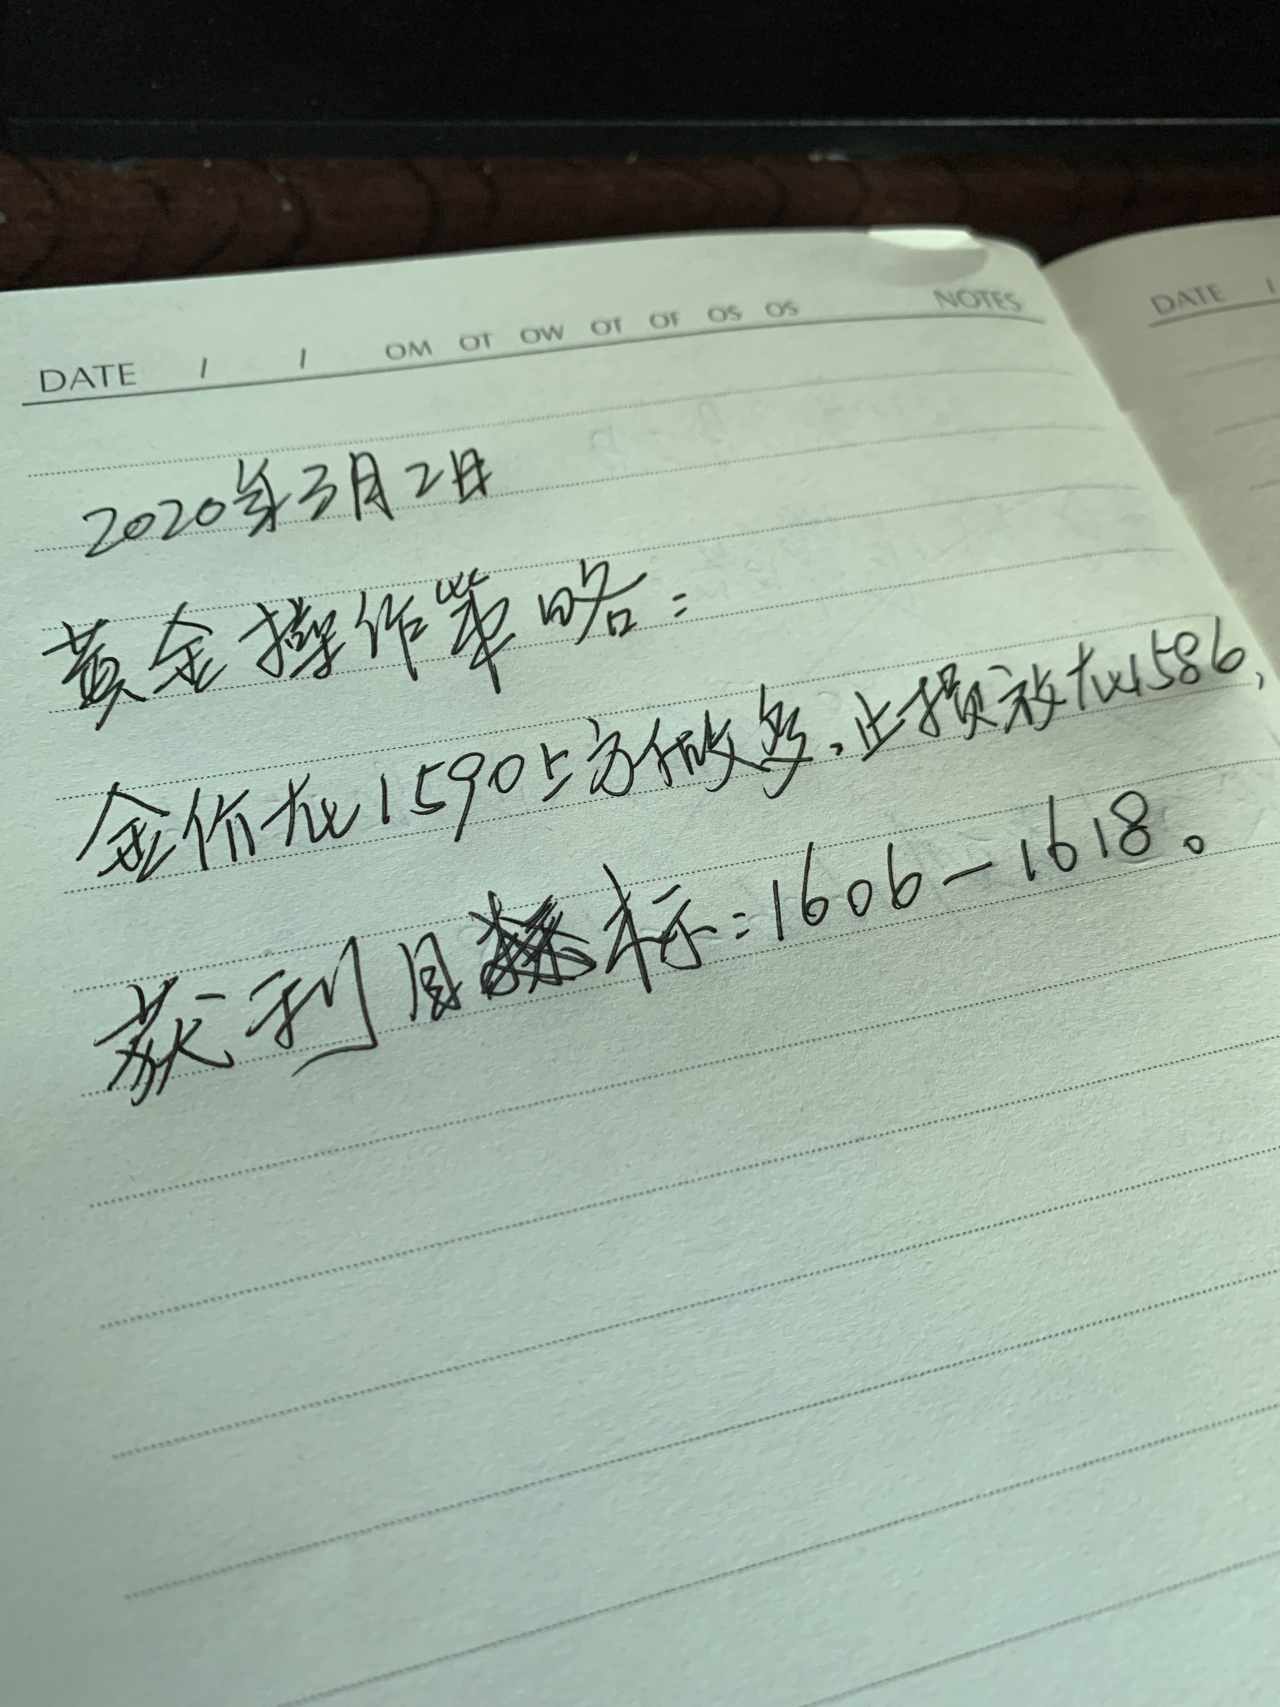 DATE / / OM OT OW OT OF OS OS NOTES
DATE /
2020年3月2日
黄金操作策略:
金价在1590上方做多,止损放在1586,
获利目标:1606-1618。